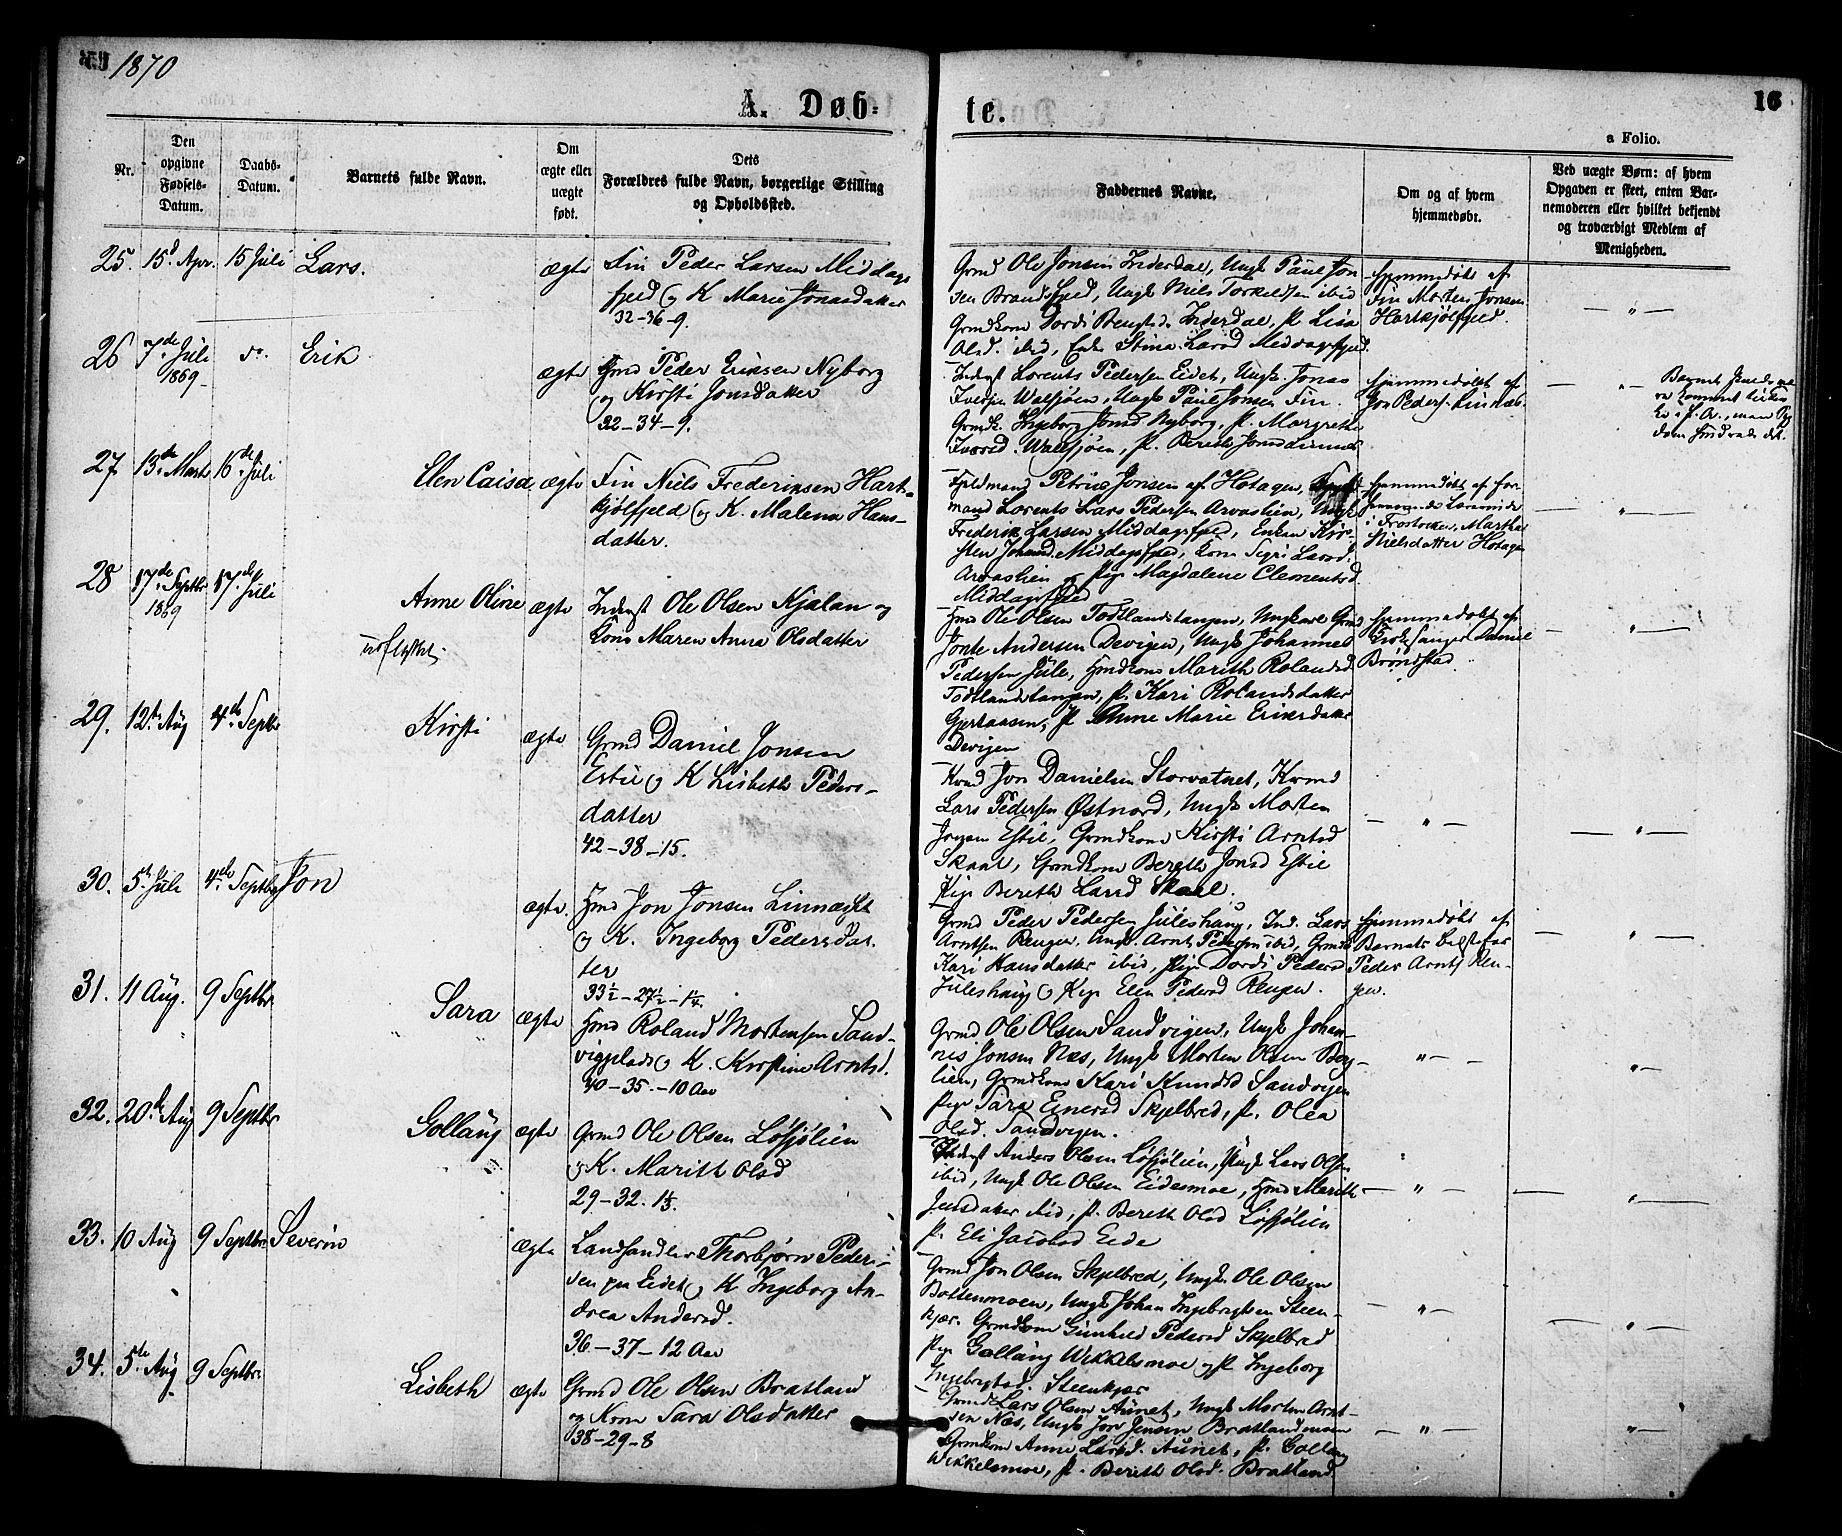 1870
A. Døb-
te.
16
a Folio.
Nr.
Den opgivne Fødsels-Datum.
Daabs-Datum.
Barnets fulde Navn.
Om ægte eller uægte født.
Dets Forældres fulde Navn, borgerlige Stilling og Opholdssted.
Faddernes Navne.
Om og af hvem hjemmedøbt.
Ved uægte Børn: af hvem Opgaven er skeet, enten Barnemoderen eller hvilket bekjendt og troværdigt Medlem af Menigheden.
25. 15d Apr. 15 Juli Lars. ægte
Fin Peder Larsen Middags
fjeld og K Marie Jonasdatter
32-36-9.
Grmd Ole Jonsen Inderdal, Ungk Paul Jon
sen Brandsfjed, Ungk Niels Torkeldsen ibid
Grmdkone Dordi Bengtsd. Inderdal, P. Lisa
Olsd. ibid, Enke Stina Larsd Middagsfjed.
Hjemmedøbt af
Fin Morten Jonsen
Hartkjølfjeld.
26 7de Juli 1869 do. Erik ægte
Gmd Peder Eriksen Nyborg
og Kirsti Jonsdatter
32-34-9.
Inderst Lorents Pedersen Eidet, Ungk. Jonas
Iversen Walsjøen, Ungk Paul Jonsen Fin.
Grmdk. Ingeborg Jonsd Nyborg, P. Margrethe
Iversd. Walsjøen, P. Bereth Jonsd Linnæs
Hjemmedøbt af
Jon Peders. Linnæs.
27 13de Marts 16de Juli Elen Caisa ægte
Fin Niels Frederiksen Hart-
kjølfjeld og K. Malena Hans-
datter.
Fjeldmand Petrus Jonsen af Hotagen,
mand Lorents Lars Pedersen Arvaslien, Ungk
Frederik Larsen Middagsfjed, Enken Kir-
sten Johansd. Middagsfjed, Kone Sigri Larsd.
Arvaslien og Pige Magdalene Clementsd.
Middagsfjed
Hjemmedøbt af for
i Frostviken, Martha
Nielsdatter Hotagen
28 17de Septbr 1869 17de Juli Anne Oline ægte
udflyttet.
Inderst Ole Olsen Kjelan og
Kone Maren Anna Olsdatter
Hmd Ole Olsen Todtlandstangen, Ungkarl
Jonte Andersen Devigen, Ungk Johannes
Pedersen Jule, Hmdkone Marith Rolandsd.
Todtlandstangen, P. Kari Rolandsdatter
Gjersaasen, P Anne Marie Eriksdatter
Devigen
Hjemmedøbt af
Kirkesanger Daniel
Brøndstad
29. 12te Aug 4de Septbr Kirsti ægte
Grmd Daniel Jonsen
Estil og K Lisbeth Peders-
datter
42-38-15.
Kvmd Jon Danielsen Storvatnet, Kvmd
Lars Pedersen Østnord, Ungk Morten
Jonsen Estil, Grmdkone Kirsti Arntsd
Skaal, Grmdkone Bereth Jonsd Estil
Pige Bereth Larsd Skaal.
30. 5te Juli 4de Septbr Jon ægte.
Hmd Jon Jonsen Linnæs
og K. Ingeborg Pedersdat-
ter
33½-27½-1¼.
Grmd Peder Pedersen Juleshaug, Ind. Lars
Arntsen Rengen, Ungk. Arnt Pedersen ibid, Grmdk
Kari Hansdatter ibid, Pige Dordi Pedersd
Juleshaug og Pige Elen Pedersd Rengen.
Hjemmedøbt af
Barnets Bedstefar
Peder Arnts. Ren-
gen.
31. 11 Aug. 9 Septbr. Sara ægte
Hmd Roland Mortensen Sand-
vigplads og K. Kirstine Arntsd.
40-35-10 Aar
Grmd Ole Olsen Sandvigen, Ungk Johan-
nes Jonsen Næs, Ungk Morten Olsen Berg-
lien, Grmdkone Kari Knudsd Sandvigen
Pige Sara Einersd Skjelbred, P. Olea
Olsd. Sandvigen.
32. 20de Aug 9 Septbr Gollaug ægte
Grmd Ole Olsen Løfsjølien
og K. Marith Olsd
29-32.
Inderst Anders Olsen Løfsjølien, Ungk Lars Olsen
ibid, Ungk Ole Olsen Eidesmoe, Hmd Marith
Jensdatter ibid, P. Bereth Olsd Løfsjølien
P. Eli Jacobsd Eide
33. 10 Aug 9 Septbr. Severin ægte
Landhandler Thorbjørn Peder-
sen paa Eidet og K Ingeborg An-
drea Andersd.
36-37-12 Aar
Grmd Jon Olsen Skjelbred, Ungk Ole Olsen
Bottenmoen, Ungk Johan Ingebrigtsen Steen-
kjær. Grmdkone Gunhild Pedersd Skjelbred
Pige Gollaug Wikkelsmoe og P. Ingeborg
Ingebrigtsd. Steenkjær
34. 5te Aug 9 Septbr. Lisbeth ægte
Grmd Ole Olsen Bratland
og Kone Sara Olsdatter
38-29-8
Grmd Lars Olsen Aunet, Ungk Morten Arnt-
sen Næs, Ungk Jon Jensen Bratlandsmoen
Grmdkone Anne Larsd. Aunet, P. Gollaug
Wikkelsmoe, P. Bereth Olsd. Bratland.